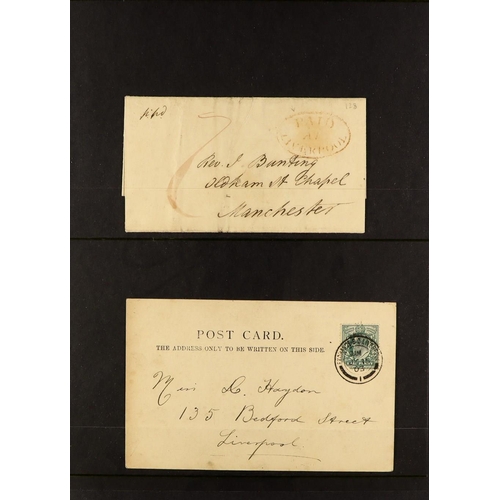 p/pd
PAID
AT
LIVERPOOL
Rev. J. Bunting
Oldham St Chapel
Manchester
POST CARD.
THE ADDRESS ONLY TO BE WRITTEN ON THIS SIDE.
Miss L. Haydon
135 Bedford Street
Liverpool.